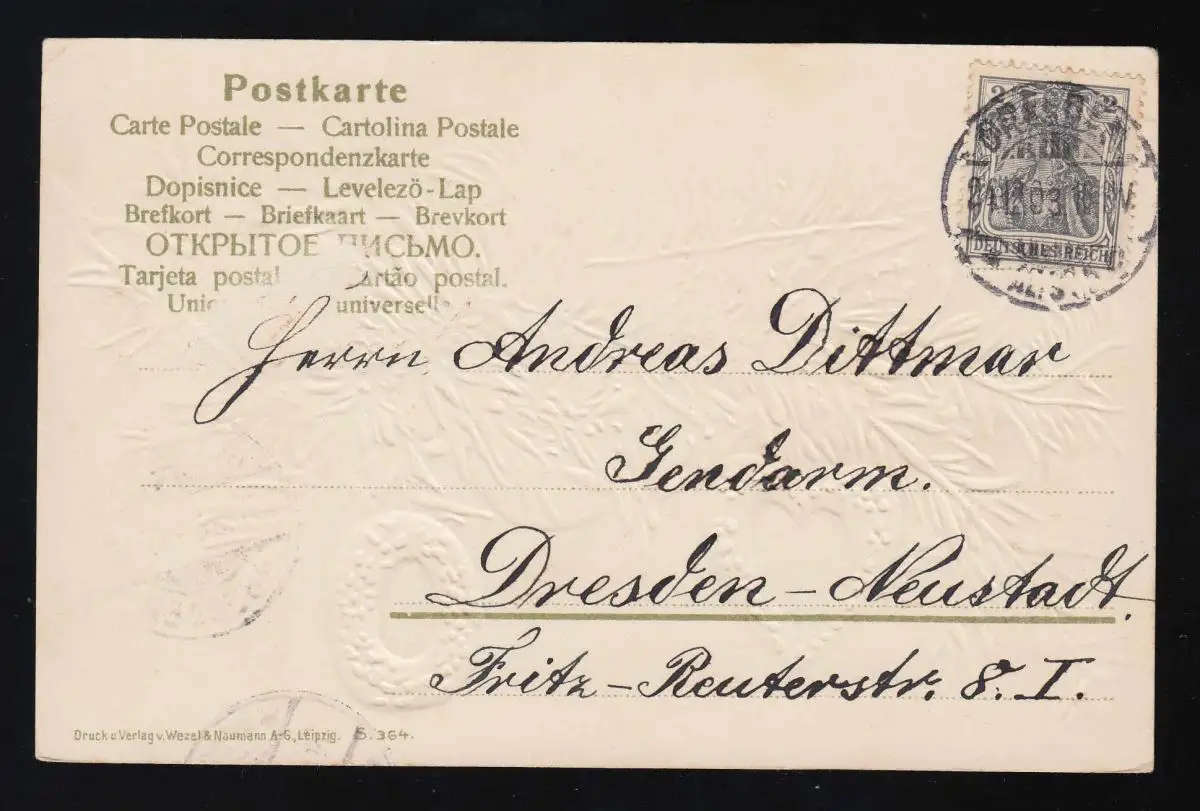 Postkarte
Carte Postale — Cartolina Postale
Correspondenzkarte
Dopisnice — Levelező-Lap
Brefkort — Briefkaart — Brevkort
ОТКРЫТОЕ ПИСЬМО.
Tarjeta postal artão postal.
Uni universelle
2 2
DRESDEN
24.12.03
DEUTSCHES REICH
Herrn Andreas Dittmar
Gendarm.
Dresden-Neustadt.
Fritz-Reuterstr. 8. I.
Druck u Verlag v. Wezel & Naumann A.-G., Leipzig. S. 364.